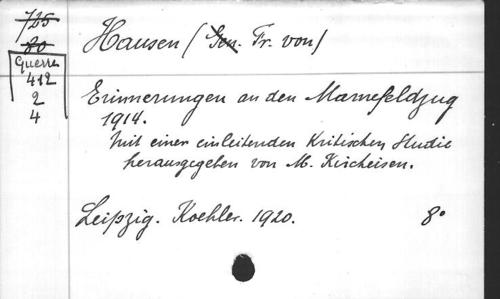 725
80
Guerre
412
2
4
Hausen (Gen. Fr. von)
Erinnerungen an den Marnefeldzug
1914.
Mit einer einleitenden Kritischen Studie
herausgegeben von M. Kircheisen.
Leipzig. Koehler. 1920. 8°